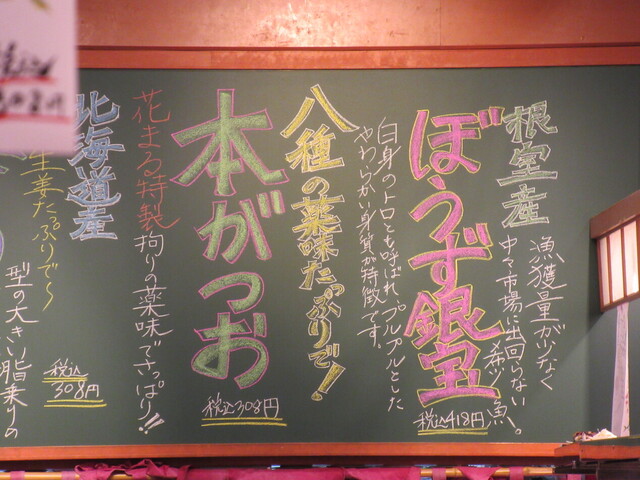 根室産
漁獲量が少なく
中々市場に出回らない
希少魚。
ぼうず銀宝
税込418円
白身のトロとも呼ばれ、プルプルとした
やわらかい身質が特徴です。
八種の薬味たっぷりで！
本がつお
税込308円
花まる特製
拘りの薬味でさっぱり!!
北海道産
生姜たっぷりで〜
税込
308円
型の大きい脂乗りの